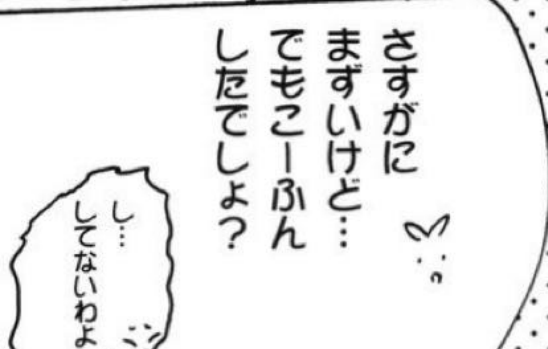 さすがに
まずいけど…
でもこーふん
したでしょ？
し…
してないわよ